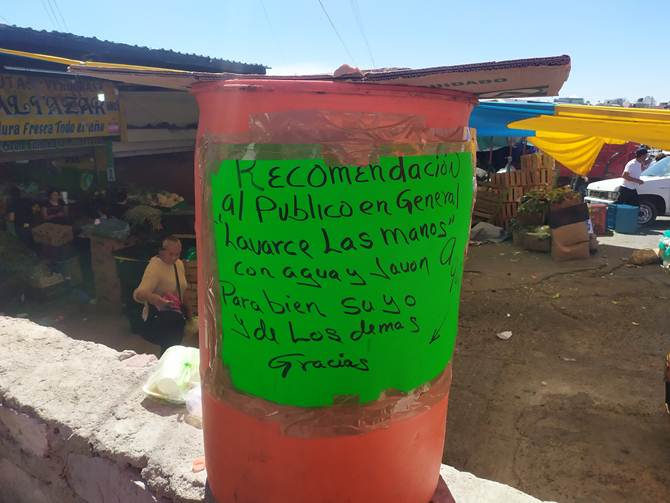 CUIDADO
RECOMENDACIÓN
al PUBLICO en General
"Lavarce Las manos"
con agua y Javon
Para bien suyo
y de Los demas
Gracias
ura Fresca Todo el año